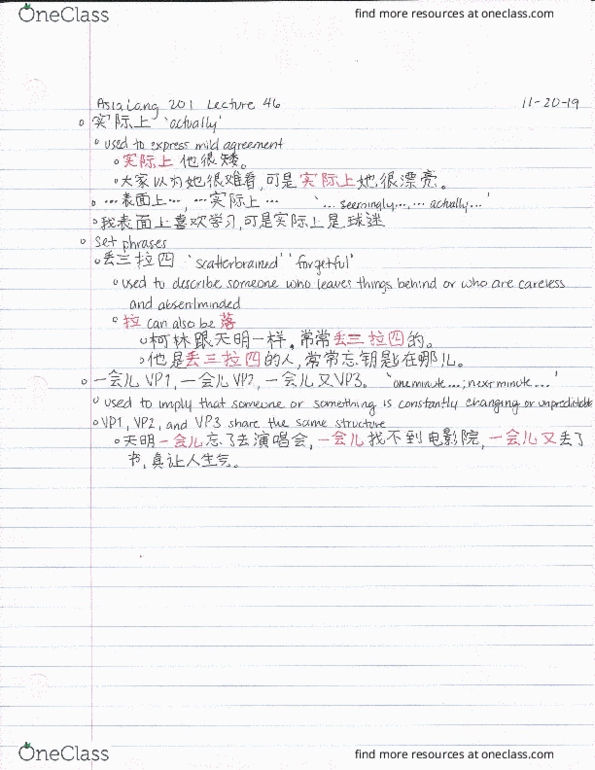 OneClass
find more resources at oneclass.com
AsiaLang 201 Lecture 46
11-20-19
实际上 'actually'
used to express mild agreement
实际上他很矮。
大家以为她很难看,可是实际上她很漂亮。
...表面上..., ...实际上... '... seemingly..., ... actually...'
我表面上喜欢学习,可是实际上是球迷
set phrases
丢三拉四 'scatterbrained' 'forgetful'
used to describe someone who leaves things behind or who are careless
and absentminded
拉 can also be 落
柯林跟天明一样,常常丢三拉四的。
他是丢三拉四的人,常常忘钥匙在哪儿。
一会儿 VP1, 一会儿 VP2, 一会儿又 VP3。 'one minute...; next minute...'
used to imply that someone or something is constantly changing or unpredictable
VP1, VP2, and VP3 share the same structure
天明一会儿忘了去演唱会,一会儿找不到电影院,一会儿又丢了
书,真让人生气。
OneClass
find more resources at oneclass.com